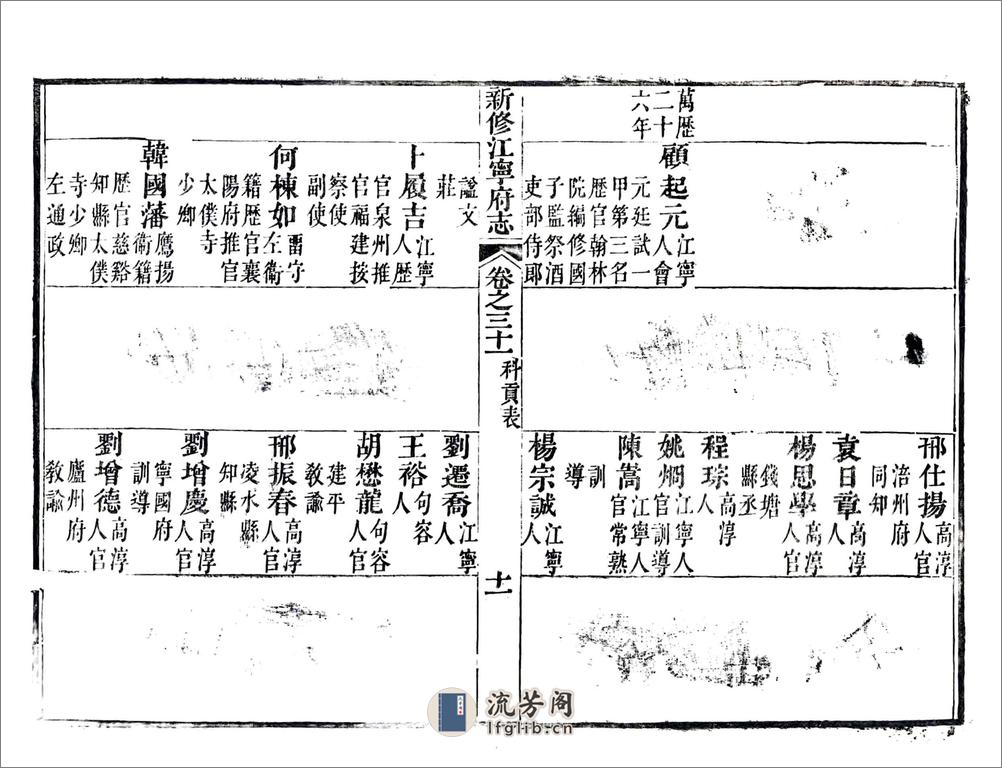 萬歷
二十
六年
顧起元江寧人會
元廷試一
甲第三名
歷官翰林
院編修國
子監祭酒
吏部侍郎
邢仕揚高淳人官
涪州府
同知
袁日章高淳人
楊思學高淳人官
錢塘
縣丞
程琮高淳人
姚烱江寧人官訓導
陳嵩江寧人官常熟
訓
導
楊宗誠江寧人
新修江寧府志
卷之三十一
科貢表
十一
謚文
莊
卜履吉江寧人歷
官泉州推
官福建按
察使
副使
何棟如畱守左衛
籍歷官襄
陽府推官
太僕寺
少卿
韓國藩鷹揚衛籍
歷官慈谿
知縣太僕
寺少卿
左通政
劉遷喬江寧人
王裕句容人
胡懋龍句容人官
建平
教諭
邢振春高淳人官
凌水縣
知縣
劉增慶高淳人官
寧國府
訓導
劉增德高淳人官
廬州府
教諭
流芳阁
lfglib.cn